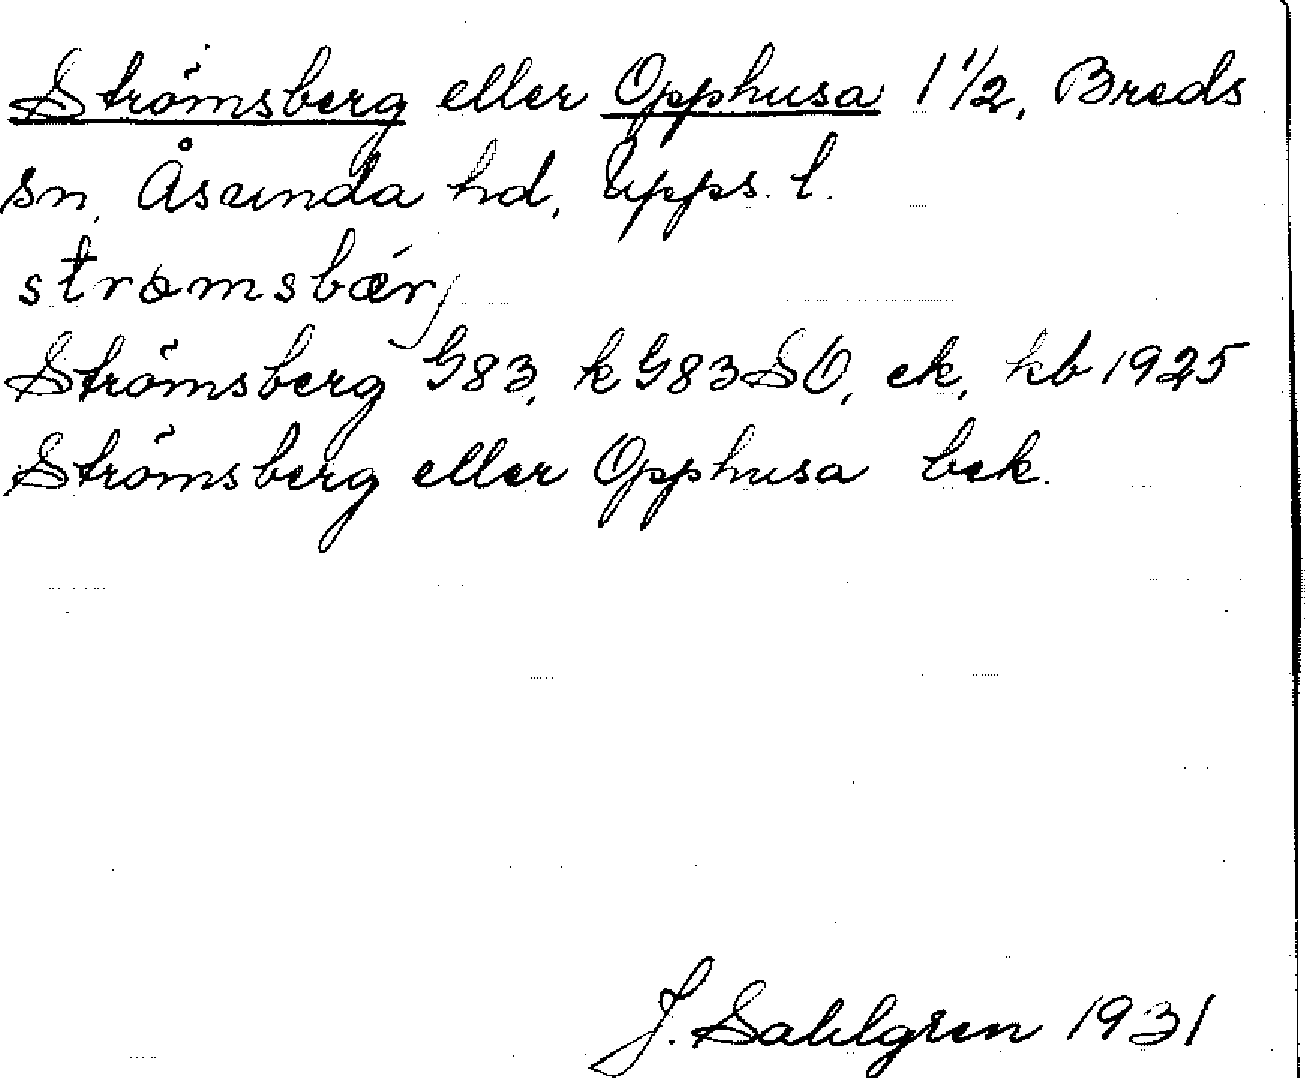 Strömsberg eller Opphusa 1 1/2, Breds
sn, Åsunda hd, Upps. l.
Strömsberg G83, k G83SO, ek, kb 1925
Strömsberg eller Opphusa bek.
J. Sahlgren 1931